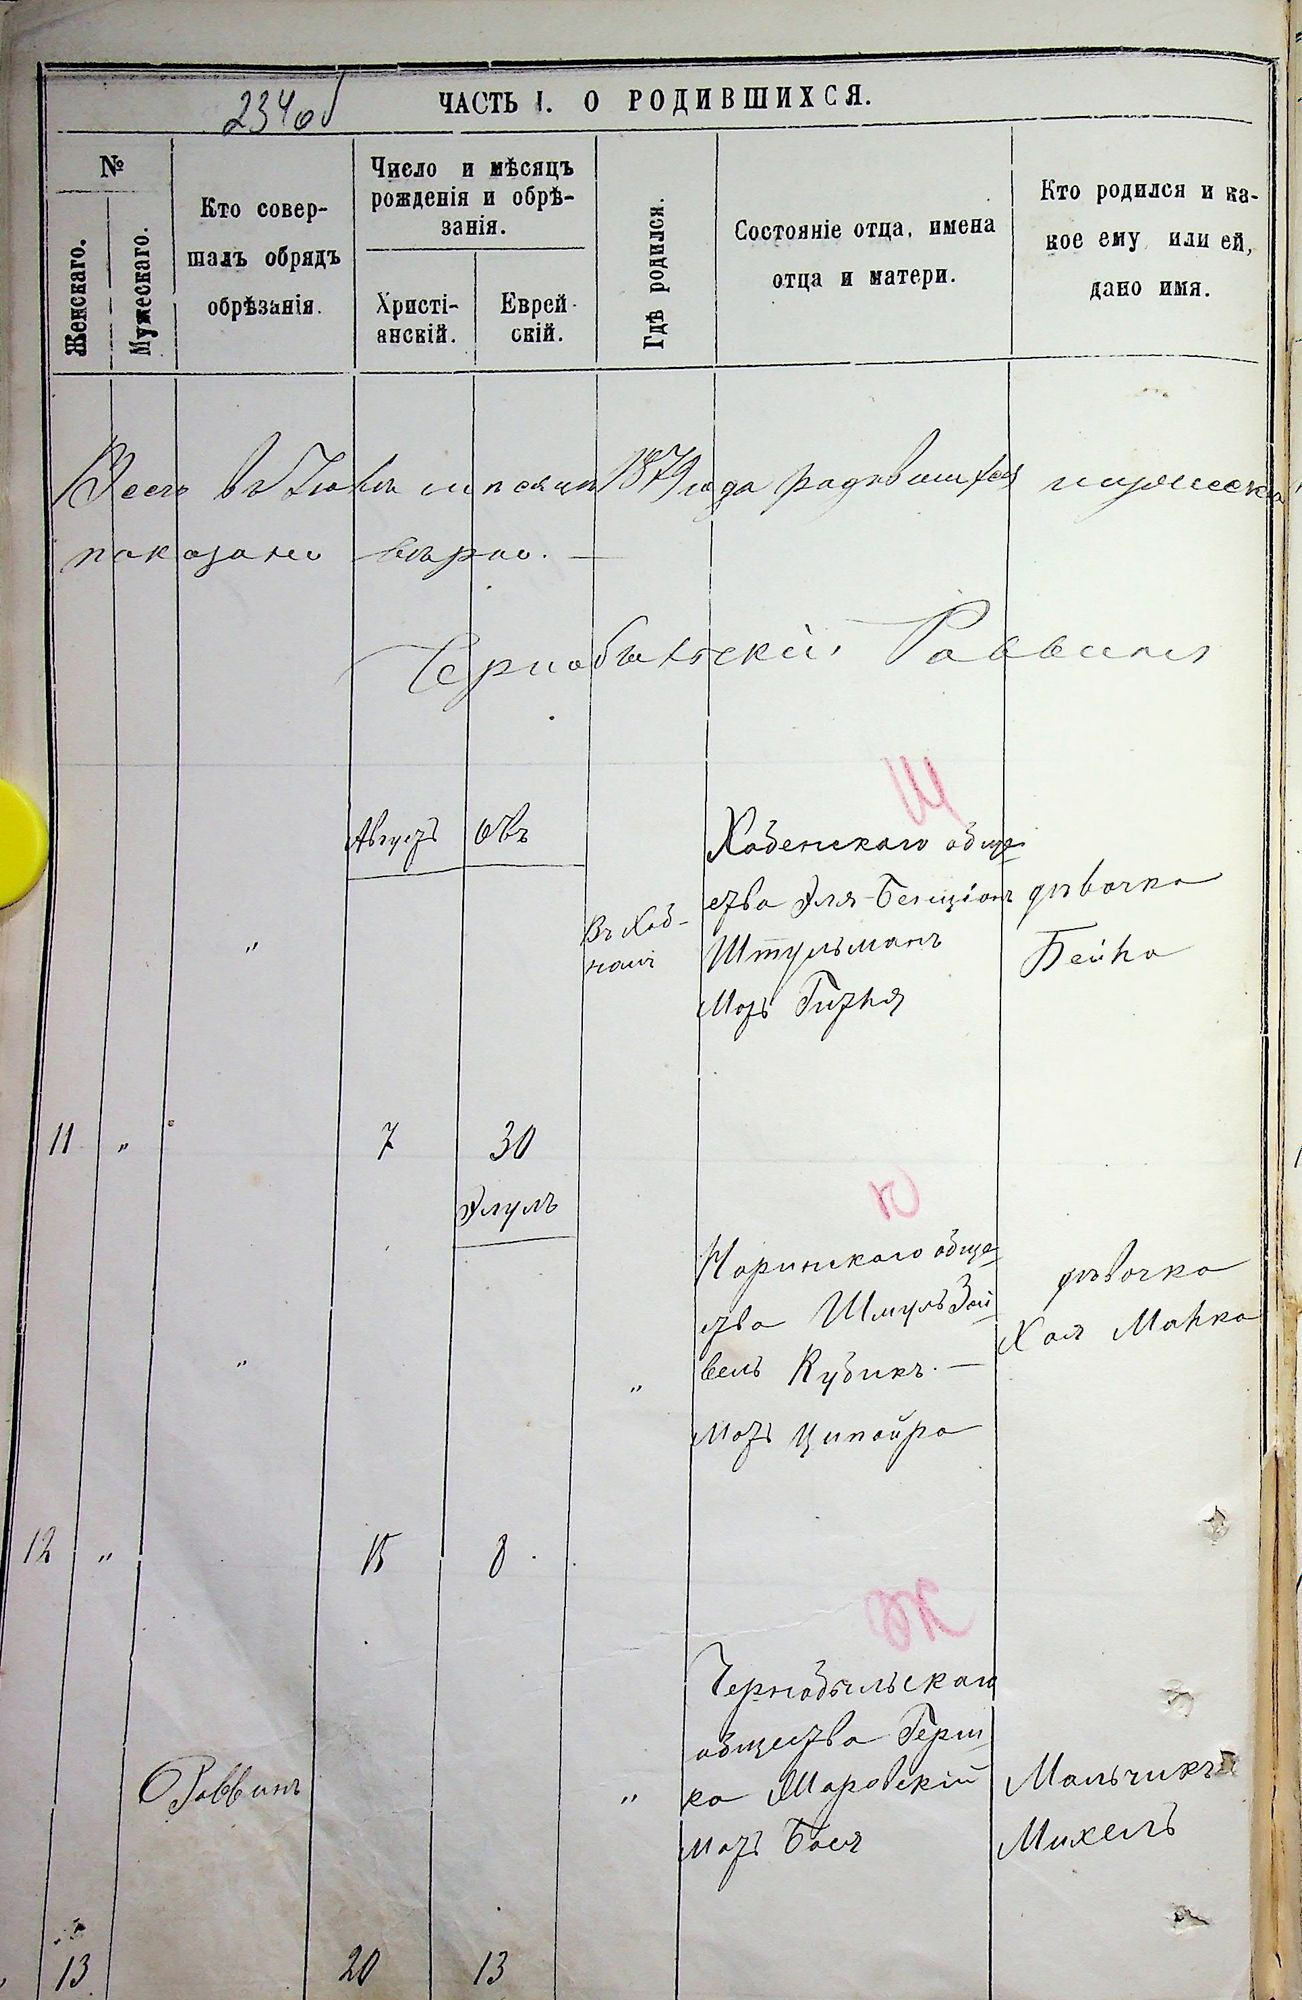 234 об
ЧАСТЬ I. О РОДИВШИХСЯ.
№
Женскаго.
Мужескаго.
Кто совер-
шалъ обрядъ
обрѣзанія.
Число и мѣсяцъ
рожденія и обрѣ-
занія.
Христі-
анскій.
Еврей-
скій.
Гдѣ родился.
Состояніе отца, имена
отца и матери.
Кто родился и ка-
кое ему или ей,
дано имя.
въ мѣсяцѣ 1879 года родившихся
показано вѣрно. —
Чернобыльскій Раввинъ
Августъ
Овъ
"
Въ Хаб-
номъ
Ш
Хабенскаго обще-
ства Эля-Бенціонъ
Штульманъ
Мать Гитля
дѣвочка
Бейла
11
"
7
30
Элулъ
"
"
К
Наринскаго обще-
ства Шмуль Зай-
вель Кубикъ. —
Мать Ципойра
дѣвочка
Хая Малка
12
"
15
8
Раввинъ
"
Ж
Чернобыльскаго
общества Герш-
ко
Мать Бася
Мальчикъ
Михель
13
20
13